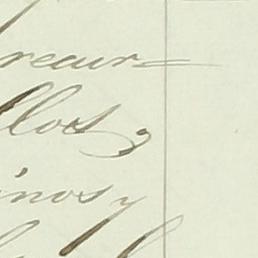 recur=
llos;
inos y